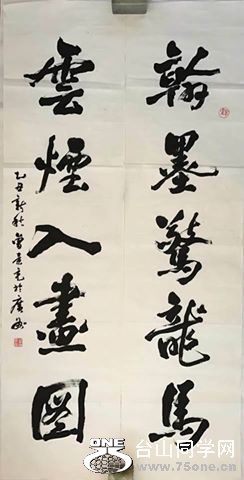 翰墨驚龍馬
雲煙入畫圖
乙丑新秋曾景充於廣州
ONE
台山同学网
www.75one.cn